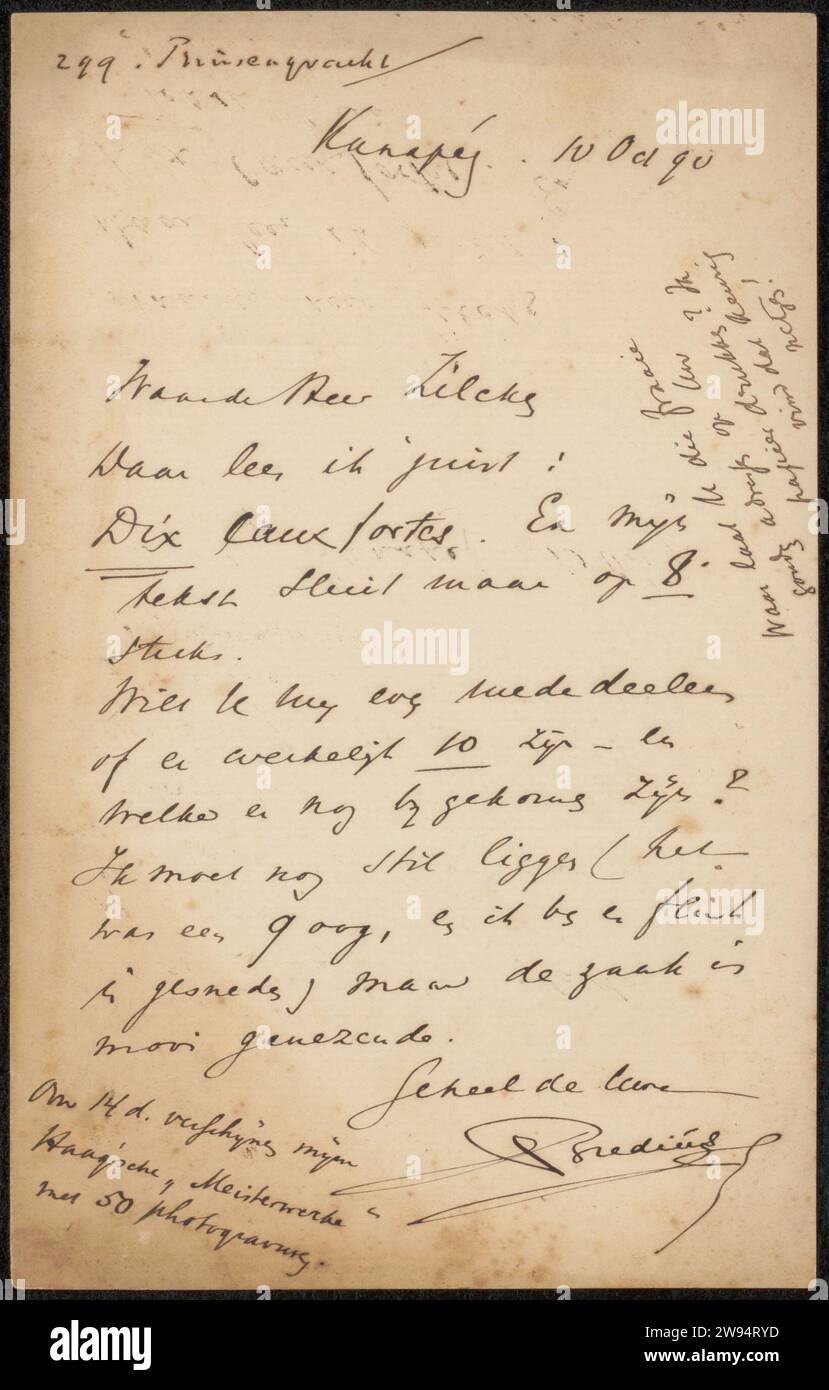 299. Prinsengracht
Kanapég. 10 Oct 90
Waarde Heer Zilcken
Daar lees ik juist:
Dix Eaux fortes. En mijn
tekst sluit maar op 8
stuks.
Wilt U my even mededeelen
of er werkelijk 10 zijn - en
welke er nog bygekomen zijn?
Ik moet nog stil liggen (het
was een oog, en ik ben er flink
in gesneden) maar de zaak is
mooi genezende.
Geheel de Uwe
ABredius
Om 14 d. verschijnen mijn
Haagsche "Meisterwerke"
met 50 photogravures.
Waar laat U die fraaie
adres drukken op Uw ? Ik
papier dat
vind netjes.
alamy
Image ID: 2W94RYD
www.alamy.com